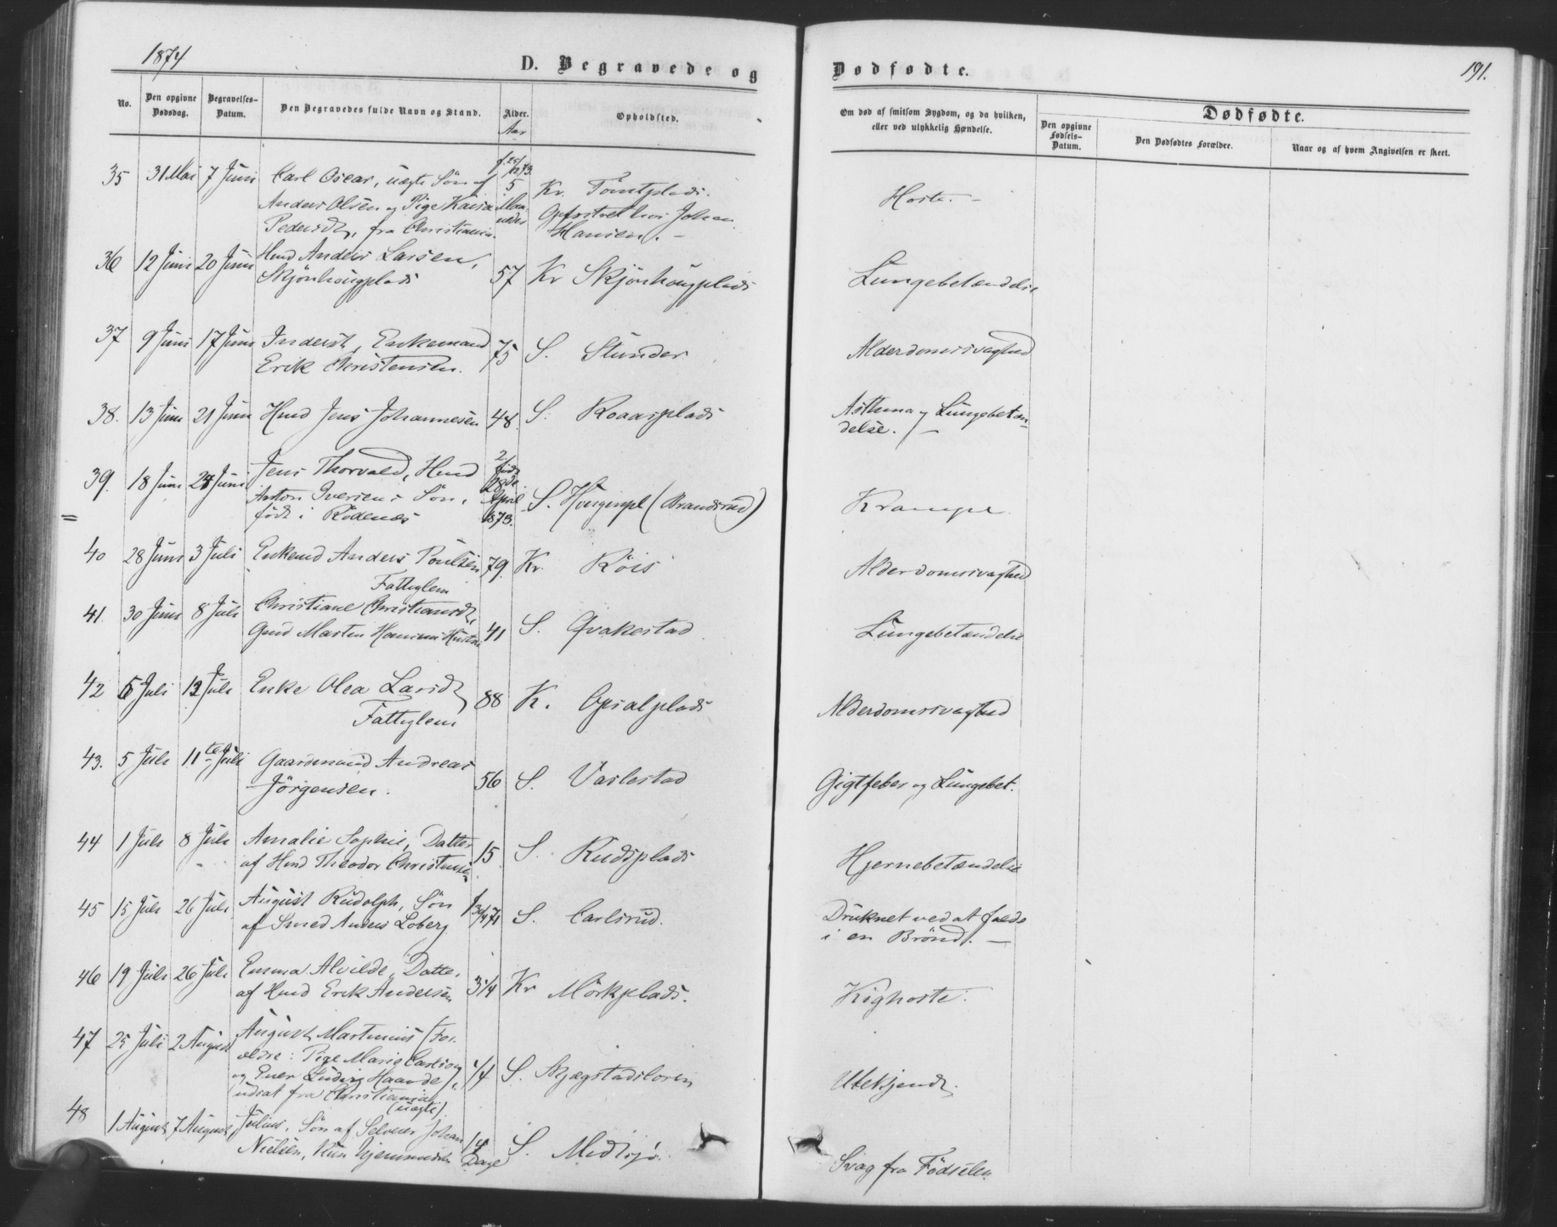 1874
D. Begravede og
Dødfødte.
191.
No.
Den opgivne Dødsdag.
Begravelses-Datum.
Den Begravedes fulde Navn og Stand.
Alder.
Aar
Opholdsted.
Om død af smitsom Sygdom, og da hvilken, eller ved ulykkelig Hændelse.
Dødfødte.
Den opgivne Fødsels-Datum.
Den Dødfødtes Forældre.
Naar og af hvem Angivelsen er skeet.
35 31 Mai 7 Juni Carl Oscar, uægte Søn af
Anders Olsen og Pige Karen
Pedersdt, fra Christiania.
5 Maaneder
Kr. Tomtplads.
Opfostret hos Johan
Hansen. -
Hoste. -
36 12 Juni 20 Juni Hmd Anders Larsen,
Skjønhougplads
57 Kr Skjønhougplads
Lungebetændelse
37 9 Juni 17 Juni Inderst, Enkemand
Erik Christensen.
75 S. Slunder
Alderdomssvaghed
38. 13 Juni 21 Juni Hmd Jens Johannesen 48. S. Roaasplads
Asthma og Lungebetæn-
delse. -
39. 18 Juni 24 Juni Jens Thorvald, Hmd
Anton Iversens Søn,
født i Rødenæs
April 1873.
S. Hougenpl (Brandsrud)
Krampe
40 28 Juni 3 Juli Enkemd Anders Poulsen
Fattiglem
79. Kr. Röis
Alderdomssvaghed
41. 30 Juni 8 Juli Christiane Christiansdt,
Gmd Martin Hansens Hustru
41 S. Qvakestad
Lungebetændelse
42 6 Juli 12 Juli Enke Olea Larsdt
Fattiglem
88 K. Opsalplads
Alderdomssvaghed
43. 5 Juli 11te Juli Gaardmand Andreas
Jörgensen.
56 S. Varlestad
Gigtfeber og Lungebet.
44 1 Juli 8 Juli Amalie Sophie, Datter
af Hmd Theodor Christensen
15 S. Rudsplads
Hjernebetændelse
45 15 Juli 26 Juli August Rudolph, Søn
af Smed Anders Loberg
S. Carlsrud.
Druknet ved at falde
i en Brønd. -
46 19 Juli 26 Juli Emma Alvilde, Datter
af Hmd Erik Andersen
3 1/4 Kr Mörkplads.
Kighoste.
47 25 Juli 2 August August Martinius (For-
ældre: Pige Marie
og Ludvig Haande),
udsat fra Christiania
(uægte)
1/4 S. Skjægstadsloren
Ubekjendt.
48 1 August 7 August Julius, Søn af Selveier Johan
Nielsen,
14 Dage
S. Midtsjø.
Svag fra Fødselen.